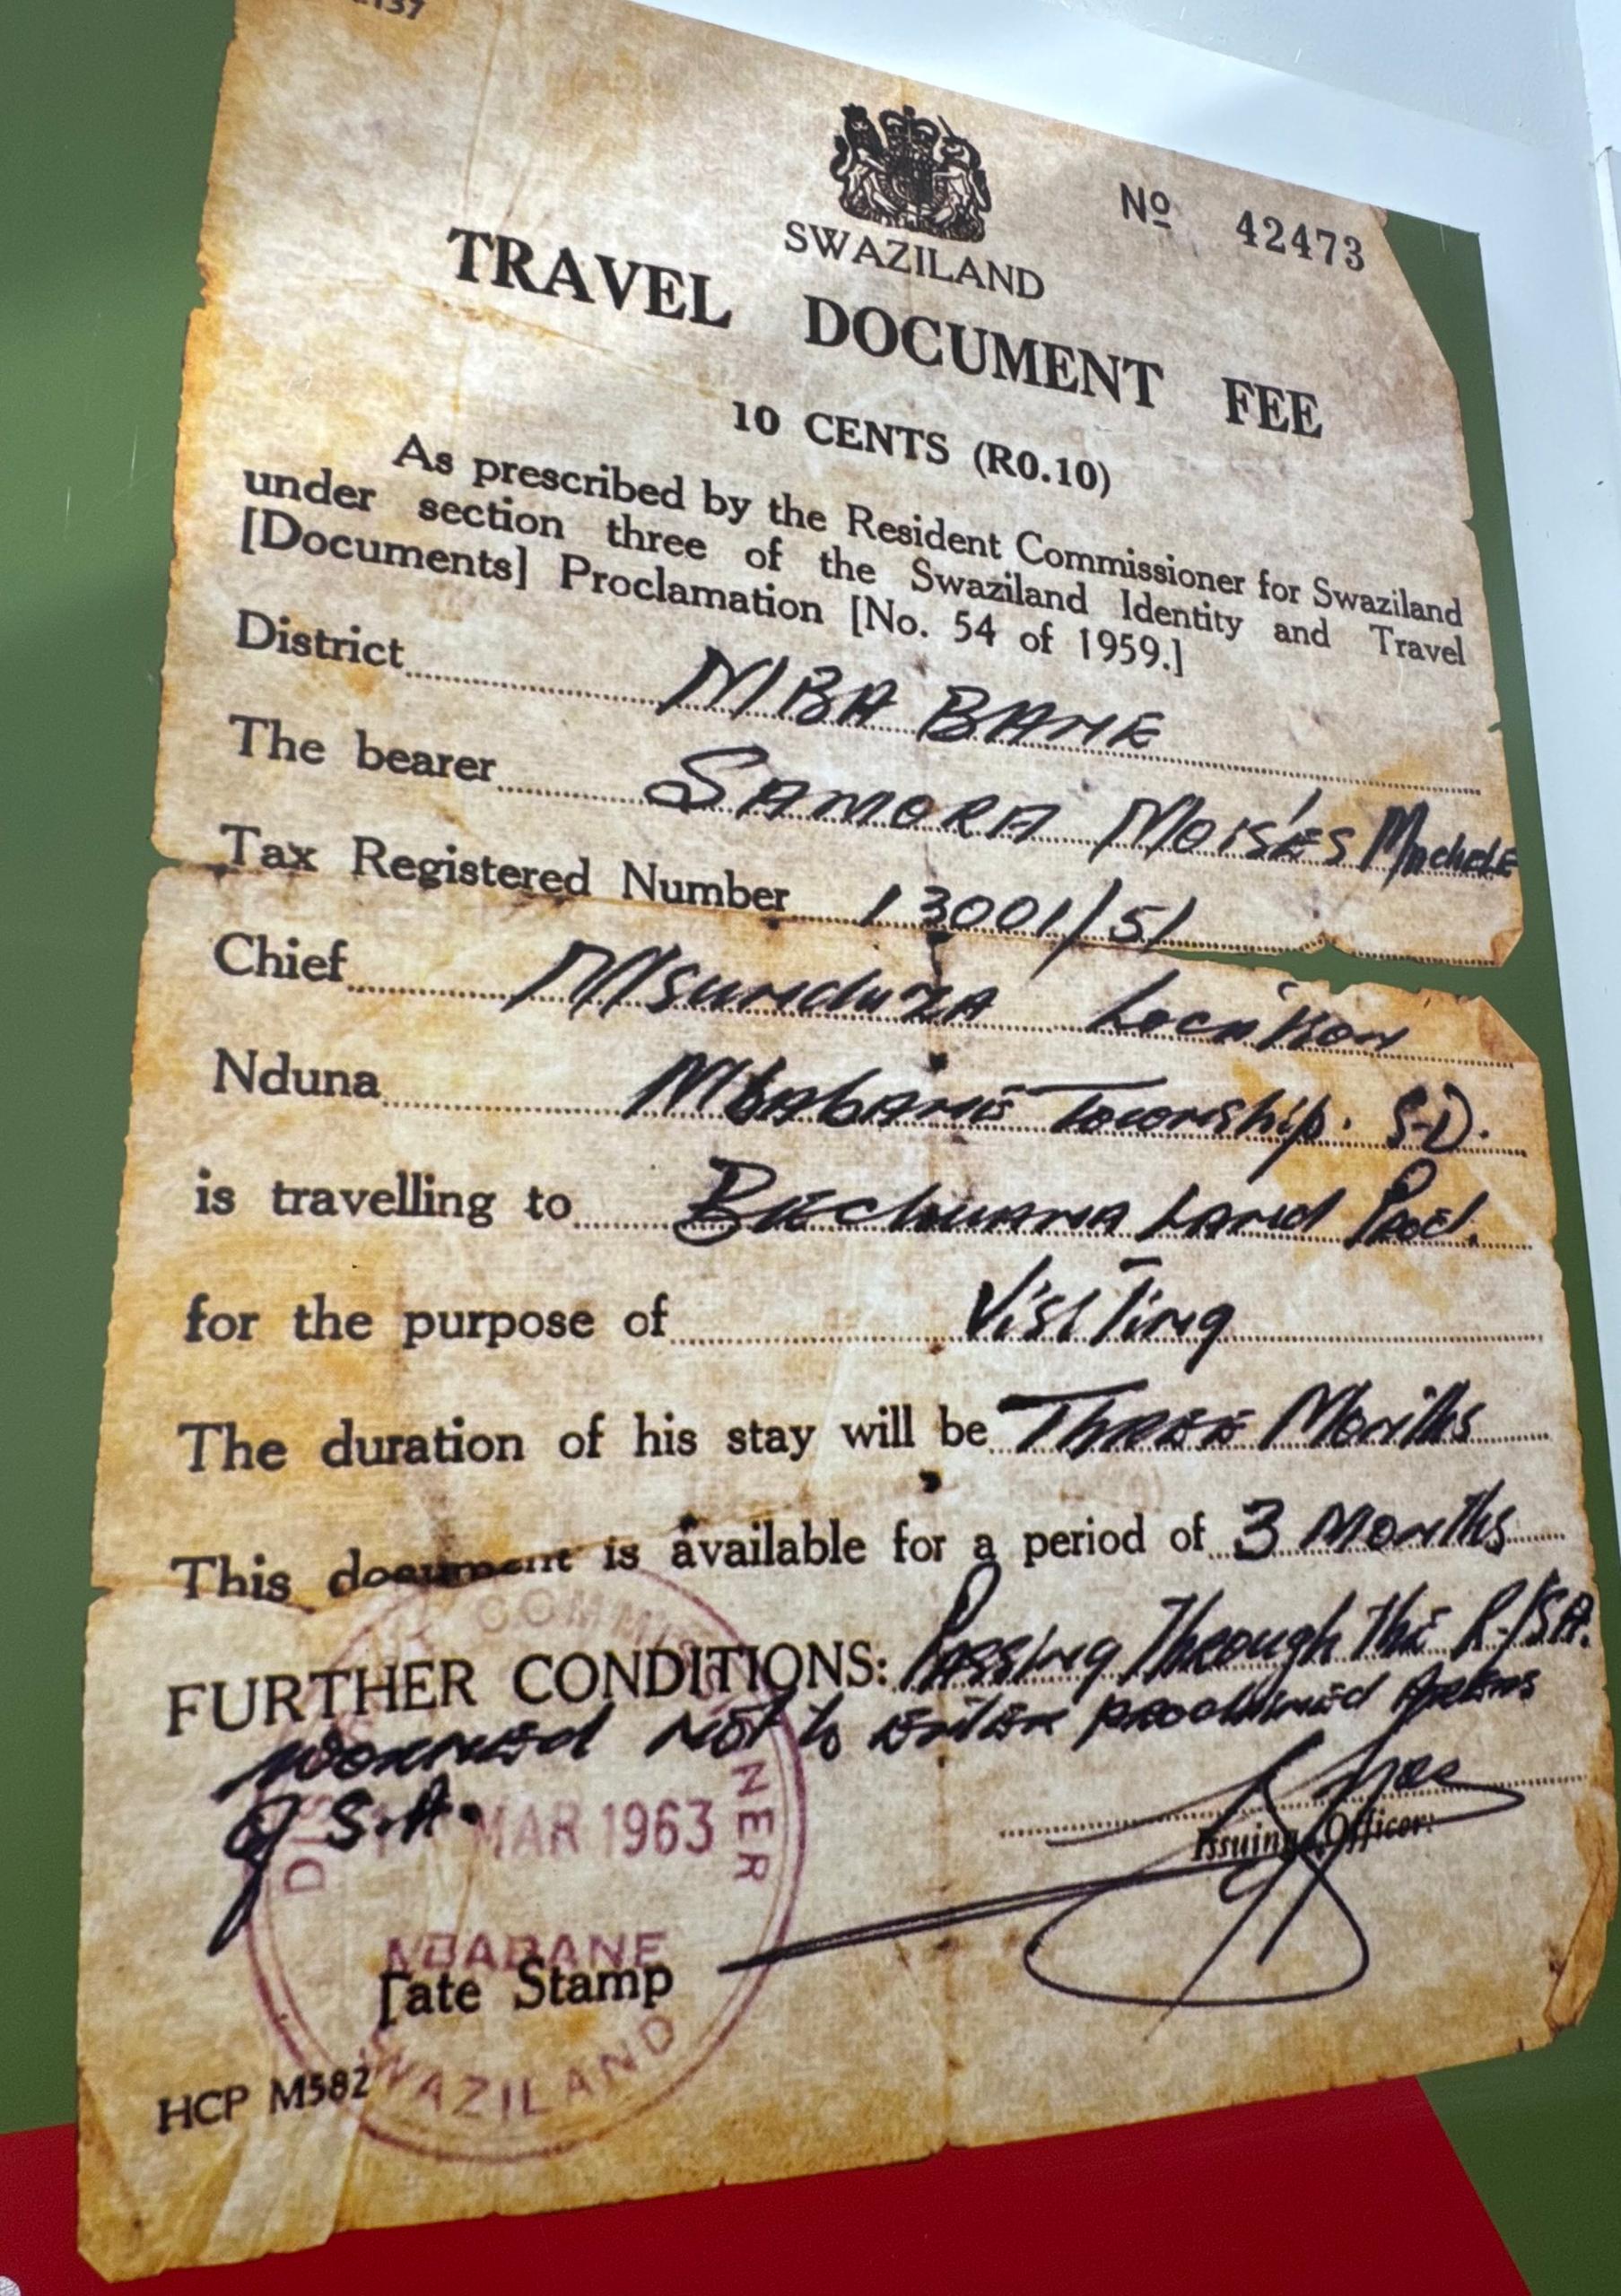 137
SWAZILAND
Nº 42473
TRAVEL DOCUMENT FEE
10 CENTS (R0.10)
As prescribed by the Resident Commissioner for Swaziland
under section three of the Swaziland Identity and Travel
[Documents] Proclamation [No. 54 of 1959.]
District MBABANE
The bearer SAMORA MOISÉS Machele
Tax Registered Number 13001/51
Chief Msunduza Location
Nduna Mbabane Township. S-D.
is travelling to Bechuana Land Prod.
for the purpose of Visiting
The duration of his stay will be Three Months
This document is available for a period of 3 Months
FURTHER CONDITIONS: Passing Through the R/SA.
worned not to enter proclaimed Areas
of S.A.
COMMISSIONER
MAR 1963
MBABANE
SWAZILAND
Issuing Officer.
Date Stamp
HCP M582